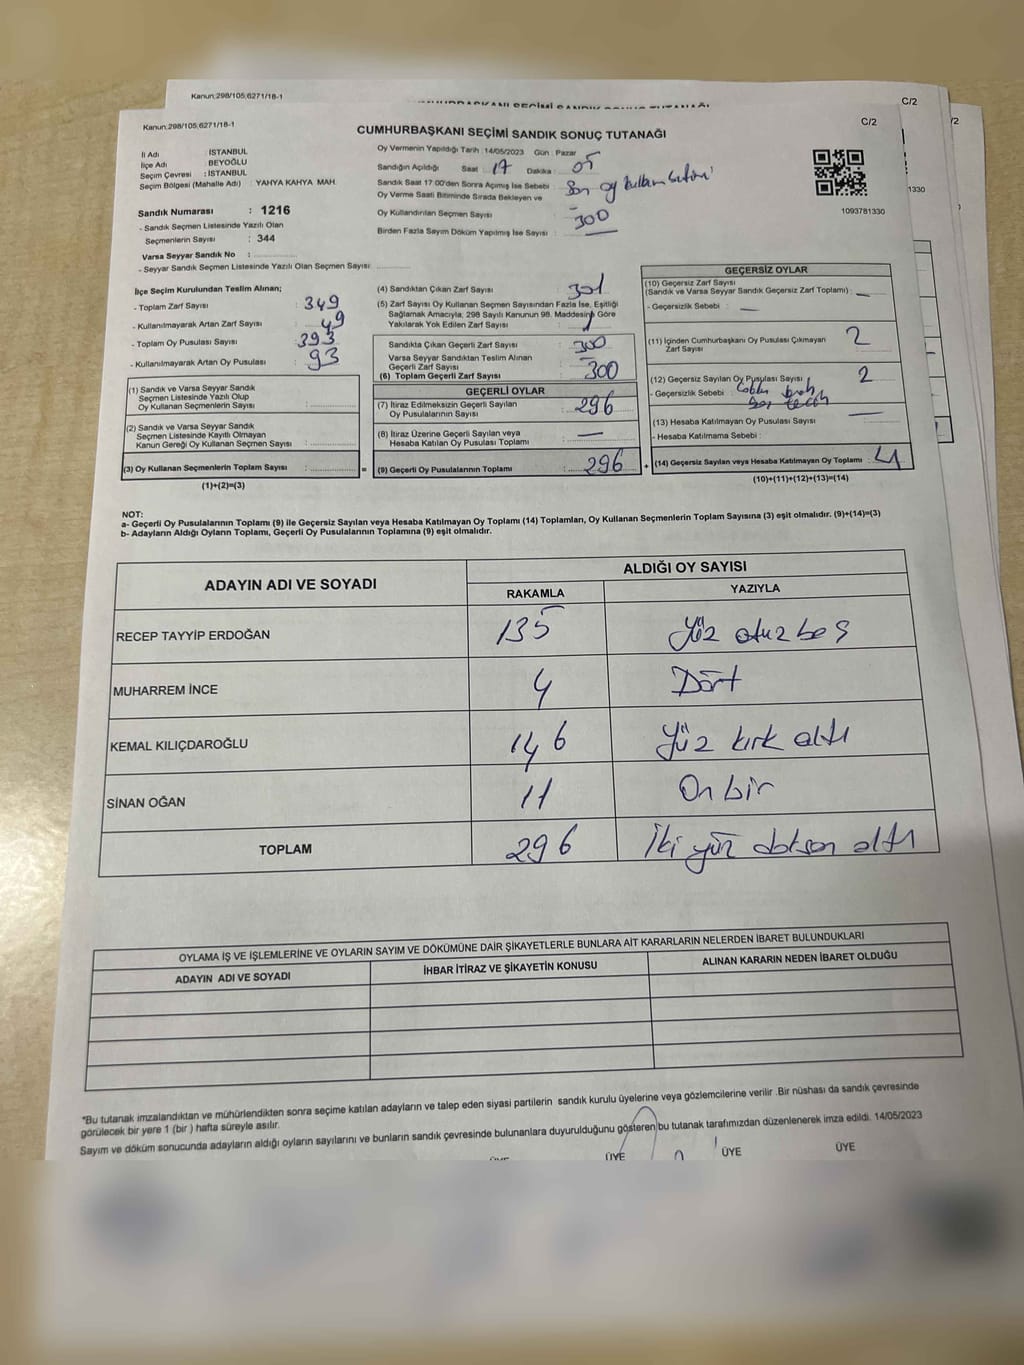 Kanun:298/105,6271/18-1
C/2
/2
1330
Kanun:298/105,6271/18-1
C/2
CUMHURBAŞKANI SEÇİMİ SANDIK SONUÇ TUTANAĞI
İl Adı : İSTANBUL
İlçe Adı : BEYOĞLU
Seçim Çevresi : İSTANBUL
Seçim Bölgesi (Mahalle Adı) : YAHYA KAHYA MAH.
Sandık Numarası : 1216
- Sandık Seçmen Listesinde Yazılı Olan
Seçmenlerin Sayısı : 344
Varsa Seyyar Sandık No :
- Seyyar Sandık Seçmen Listesinde Yazılı Olan Seçmen Sayısı:
Oy Vermenin Yapıldığı Tarih : 14/05/2023 Gün : Pazar
Sandığın Açıldığı Saat : 17 Dakika : 05
Sandık Saat 17.00'den Sonra Açımış İse Sebebi : Son oy kullanım
Oy Verme Saati Bitiminde Sırada Bekleyen ve
Oy Kullandırılan Seçmen Sayısı : 300
Birden Fazla Sayım Döküm Yapılmış İse Sayısı : —
1093781330
İlçe Seçim Kurulundan Teslim Alınan;
- Toplam Zarf Sayısı : 349
- Kullanılmayarak Artan Zarf Sayısı : 49
- Toplam Oy Pusulası Sayısı : 393
- Kullanılmayarak Artan Oy Pusulası : 93
(1) Sandık ve Varsa Seyyar Sandık
Seçmen Listesinde Yazılı Olup
Oy Kullanan Seçmenlerin Sayısı :
(2) Sandık ve Varsa Seyyar Sandık
Seçmen Listesinde Kayıtlı Olmayan
Kanun Gereği Oy Kullanan Seçmen Sayısı :
(3) Oy Kullanan Seçmenlerin Toplam Sayısı : =
(1)+(2)=(3)
(4) Sandıktan Çıkan Zarf Sayısı : 301
(5) Zarf Sayısı Oy Kullanan Seçmen Sayısından Fazla İse, Eşitliği
Sağlamak Amacıyla; 298 Sayılı Kanunun 98. Maddesine Göre
Yakılarak Yok Edilen Zarf Sayısı : 1
Sandıkta Çıkan Geçerli Zarf Sayısı : 300
Varsa Seyyar Sandıktan Teslim Alınan
Geçerli Zarf Sayısı : —
(6) Toplam Geçerli Zarf Sayısı : 300
GEÇERLİ OYLAR
(7) İtiraz Edilmeksizin Geçerli Sayılan
Oy Pusulalarının Sayısı : 296
(8) İtiraz Üzerine Geçerli Sayılan veya
Hesaba Katılan Oy Pusulası Toplamı : —
(9) Geçerli Oy Pusulalarının Toplamı : 296 +
GEÇERSİZ OYLAR
(10) Geçersiz Zarf Sayısı
(Sandık ve Varsa Seyyar Sandık Geçersiz Zarf Toplamı) : —
- Geçersizlik Sebebi : —
(11) İçinden Cumhurbaşkanı Oy Pusulası Çıkmayan
Zarf Sayısı : 2
(12) Geçersiz Sayılan Oy Pusulası Sayısı : 2
- Geçersizlik Sebebi :
(13) Hesaba Katılmayan Oy Pusulası Sayısı : —
- Hesaba Katılmama Sebebi :
(14) Geçersiz Sayılan veya Hesaba Katılmayan Oy Toplamı : 4
(10)+(11)+(12)+(13)=(14)
NOT:
a- Geçerli Oy Pusulalarının Toplamı (9) ile Geçersiz Sayılan veya Hesaba Katılmayan Oy Toplamı (14) Toplamları, Oy Kullanan Seçmenlerin Toplam Sayısına (3) eşit olmalıdır. (9)+(14)=(3)
b- Adayların Aldığı Oyların Toplamı, Geçerli Oy Pusulalarının Toplamına (9) eşit olmalıdır.
ADAYIN ADI VE SOYADI ALDIĞI OY SAYISI
RAKAMLA YAZIYLA
RECEP TAYYİP ERDOĞAN 135 Yüz otuz beş
MUHARREM İNCE 4 Dört
KEMAL KILIÇDAROĞLU 146 Yüz kırk altı
SİNAN OĞAN 11 On bir
TOPLAM 296 İki yüz doksan altı
OYLAMA İŞ VE İŞLEMLERİNE VE OYLARIN SAYIM VE DÖKÜMÜNE DAİR ŞİKAYETLERLE BUNLARA AİT KARARLARIN NELERDEN İBARET BULUNDUKLARI
ADAYIN ADI VE SOYADI İHBAR İTİRAZ VE ŞİKAYETİN KONUSU ALINAN KARARIN NEDEN İBARET OLDUĞU
*Bu tutanak imzalandıktan ve mühürlendikten sonra seçime katılan adayların ve talep eden siyasi partilerin sandık kurulu üyelerine veya gözlemcilerine verilir .Bir nüshası da sandık çevresinde
görülecek bir yere 1 (bir ) hafta süreyle asılır.
Sayım ve döküm sonucunda adayların aldığı oyların sayılarını ve bunların sandık çevresinde bulunanlara duyurulduğunu gösteren bu tutanak tarafımızdan düzenlenerek imza edildi. 14/05/2023
ÜYE ÜYE ÜYE